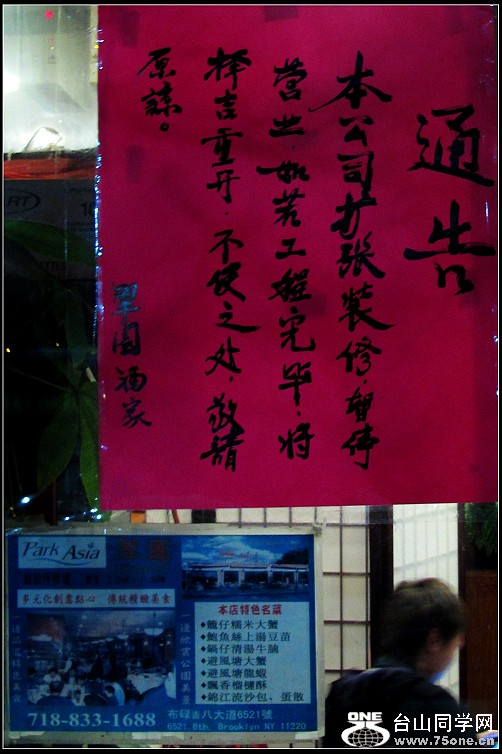 通告
本公司扩張装修.暫停
营业.如若工程完毕.将
择吉重开.不便之处.敬請
原諒。
翠園酒家
RT
Park Asia
多元化創意點心 傳統精緻美食
本店特色名菜
◆龍仔糯米大蟹
◆鮑魚絲上湯豆苗
◆鍋仔清湯牛腩
◆避風塘大蟹
◆避風塘龍蝦
◆飄香榴槤酥
◆錦江流沙包，蛋散
718-833-1688
布碌崙八大道6521號
6521 8th. Brooklyn, NY 11220
ONE
台山同学网
www.75one.cn